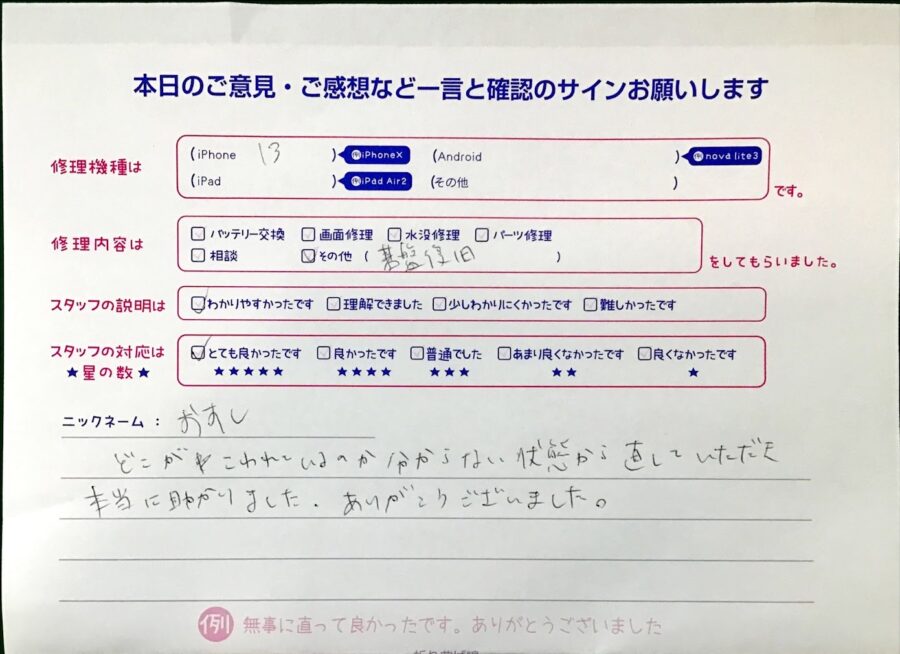 本日のご意見・ご感想など一言と確認のサインお願いします
修理機種は (iPhone 13 ) 例iPhoneX (Android ) 例nova lite3
(iPad ) 例iPad Air2 (その他 ) です。
修理内容は バッテリー交換 画面修理 水没修理 パーツ修理
相談 その他 ( 基盤復旧 ) をしてもらいました。
スタッフの説明は わかりやすかったです 理解できました 少しわかりにくかったです 難しかったです
スタッフの対応は とても良かったです 良かったです 普通でした あまり良くなかったです 良くなかったです
★星の数★ ★★★★★ ★★★★ ★★★ ★★ ★
ニックネーム： おすし
どこが こわれているのか分からない状態から直していただき
本当に助かりました. ありがとうございました。
例 無事に直って良かったです。ありがとうございました